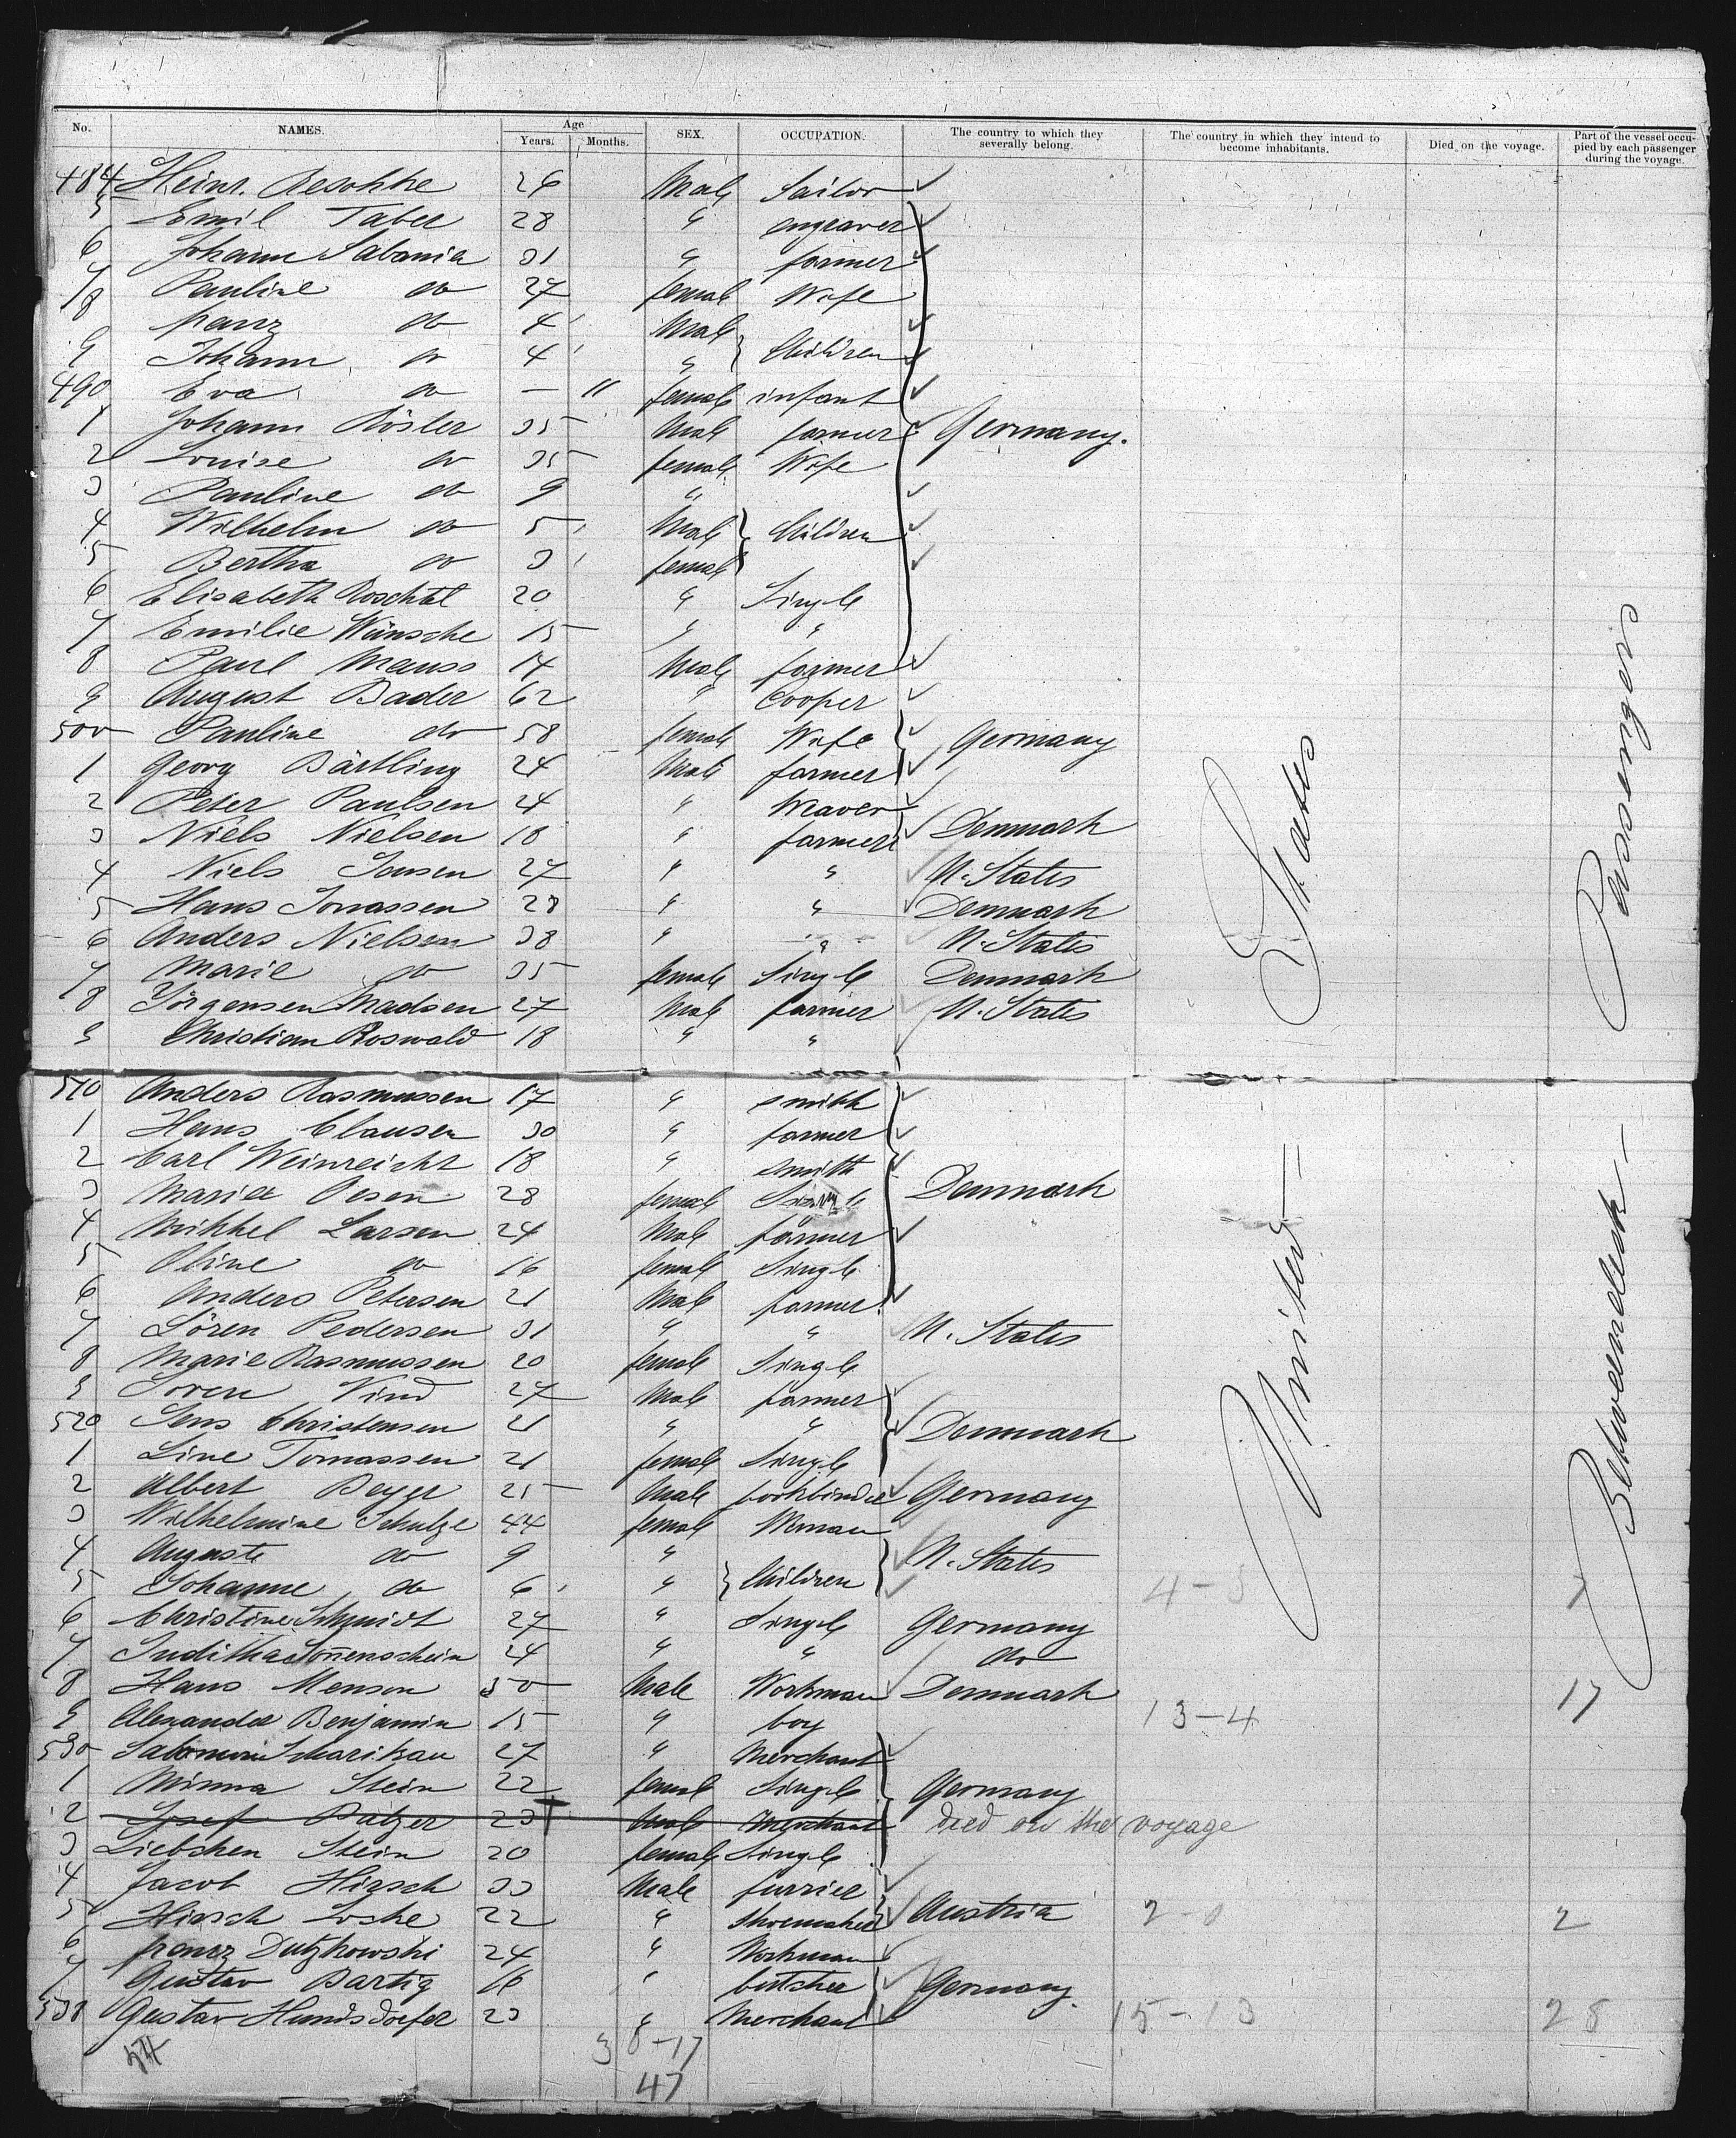 No. NAMES. Age Years. Months. SEX. OCCUPATION. The country to which they severally belong. The country in which they intend to become inhabitants. Died on the voyage. Part of the vessel occupied by each passenger during the voyage.
484 Heinr. Reschke 26 Male Sailor
5 Emil Taber 28 " engraver
6 Johann Sabania 31 " farmer
7 Pauline do 27 female Wife
8 franz do 4 Male
9 Johann do 4 " Children
490 Eva do — 11 female infant
1 Johann Rösler 35 Male farmer Germany.
2 Louise do 35 female Wife
3 Pauline do 9 "
4 Wilhelm do 5 Male Children
5 Bertha do 3 female
6 Elisabeth Roschtel 20 " Single
7 Emilie Wünsche 15 " "
8 Paul Mauss 14 Male farmer
9 August Bader 62 " Cooper
500 Pauline do 58 female Wife Germany
1 Georg Bärtling 24 Male farmer
2 Peter Paulsen 24 " Weaver
3 Niels Nielsen 18 " farmer Denmark
4 Niels Jensen 27 " " U. States
5 Hans Jonassen 28 " " Denmark
6 Anders Nielsen 38 " " U. States
7 Marie do 35 female Single Denmark
8 Jörgensen Madsen 27 Male farmer U. States
9 Christian Roswald 18 " "
510 Anders Rasmussen 17 " smith
1 Hans Clausen 30 " farmer
2 Carl Weinreicht 18 " smith
3 Marie Olesen 28 female Single Denmark
4 Mikkel Larsen 24 Male farmer
5 Oline do 16 female Single
6 Anders Petersen 21 Male farmer
7 Sören Pedersen 31 " " U. States
8 Marie Rasmussen 20 female Single
9 Soren Vind 27 Male farmer
520 Jens Christensen 21 " " Denmark
1 Line Tomassen 21 female Single
2 Albert Beyer 25 Male bookbinder Germany
3 Wilhelmine Schulze 44 female Woman
4 Auguste do 9 " U. States
5 Johanne do 6 " Children 4-3 7
6 Christine Schmidt 27 " Single Germany
7 Juditha Soñenschein 24 " " do
8 Hans Menson 30 Male Workman Denmark 17
9 Alexander Benjamin 15 " boy 13-4
530 Salomon Scharikau 27 " Merchant
1 Minna Stein 22 female Single Germany
2 Josef Balzer 23 Male Merchant died on the voyage
3 Liebchen Stein 20 female Single
4 Jacob Hirsch 33 Male furrier
5 Hirsch Locke 22 " Shoemaker Austria 2-0 2
6 franz Dutzkowski 24 " Workman
7 Gustav Bartig 16 " butcher Germany.
538 Gustav Hundsdorfer 23 " Merchant 15-13 28
54 3 8-17
47
United States
Betweendeck Passengers